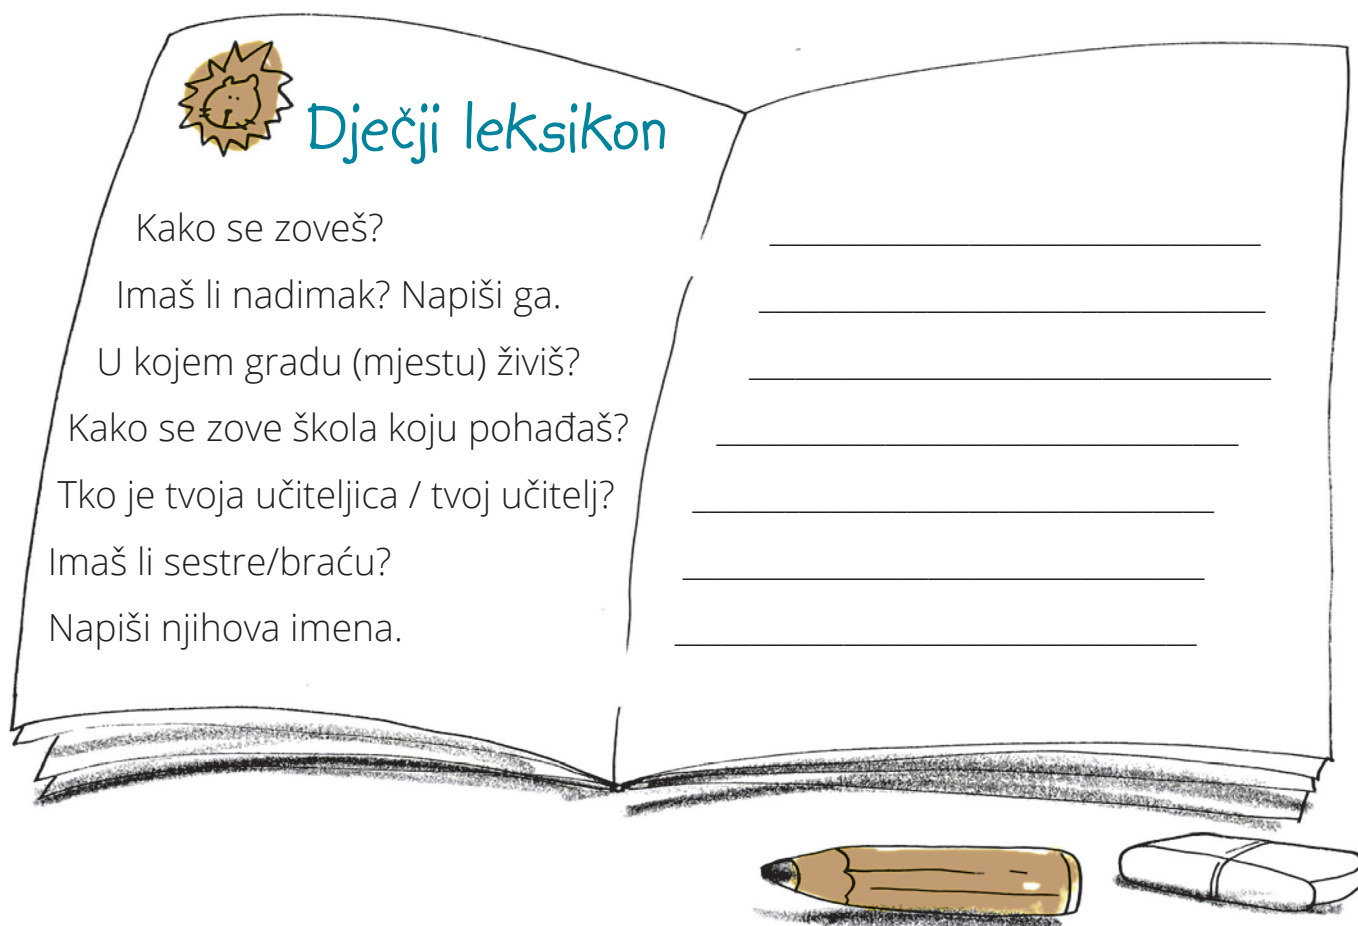 Dječji leksikon
Kako se zoveš?
Imaš li nadimak? Napiši ga.
U kojem gradu (mjestu) živiš?
Kako se zove škola koju pohađaš?
Tko je tvoja učiteljica / tvoj učitelj?
Imaš li sestre/braću?
Napiši njihova imena.